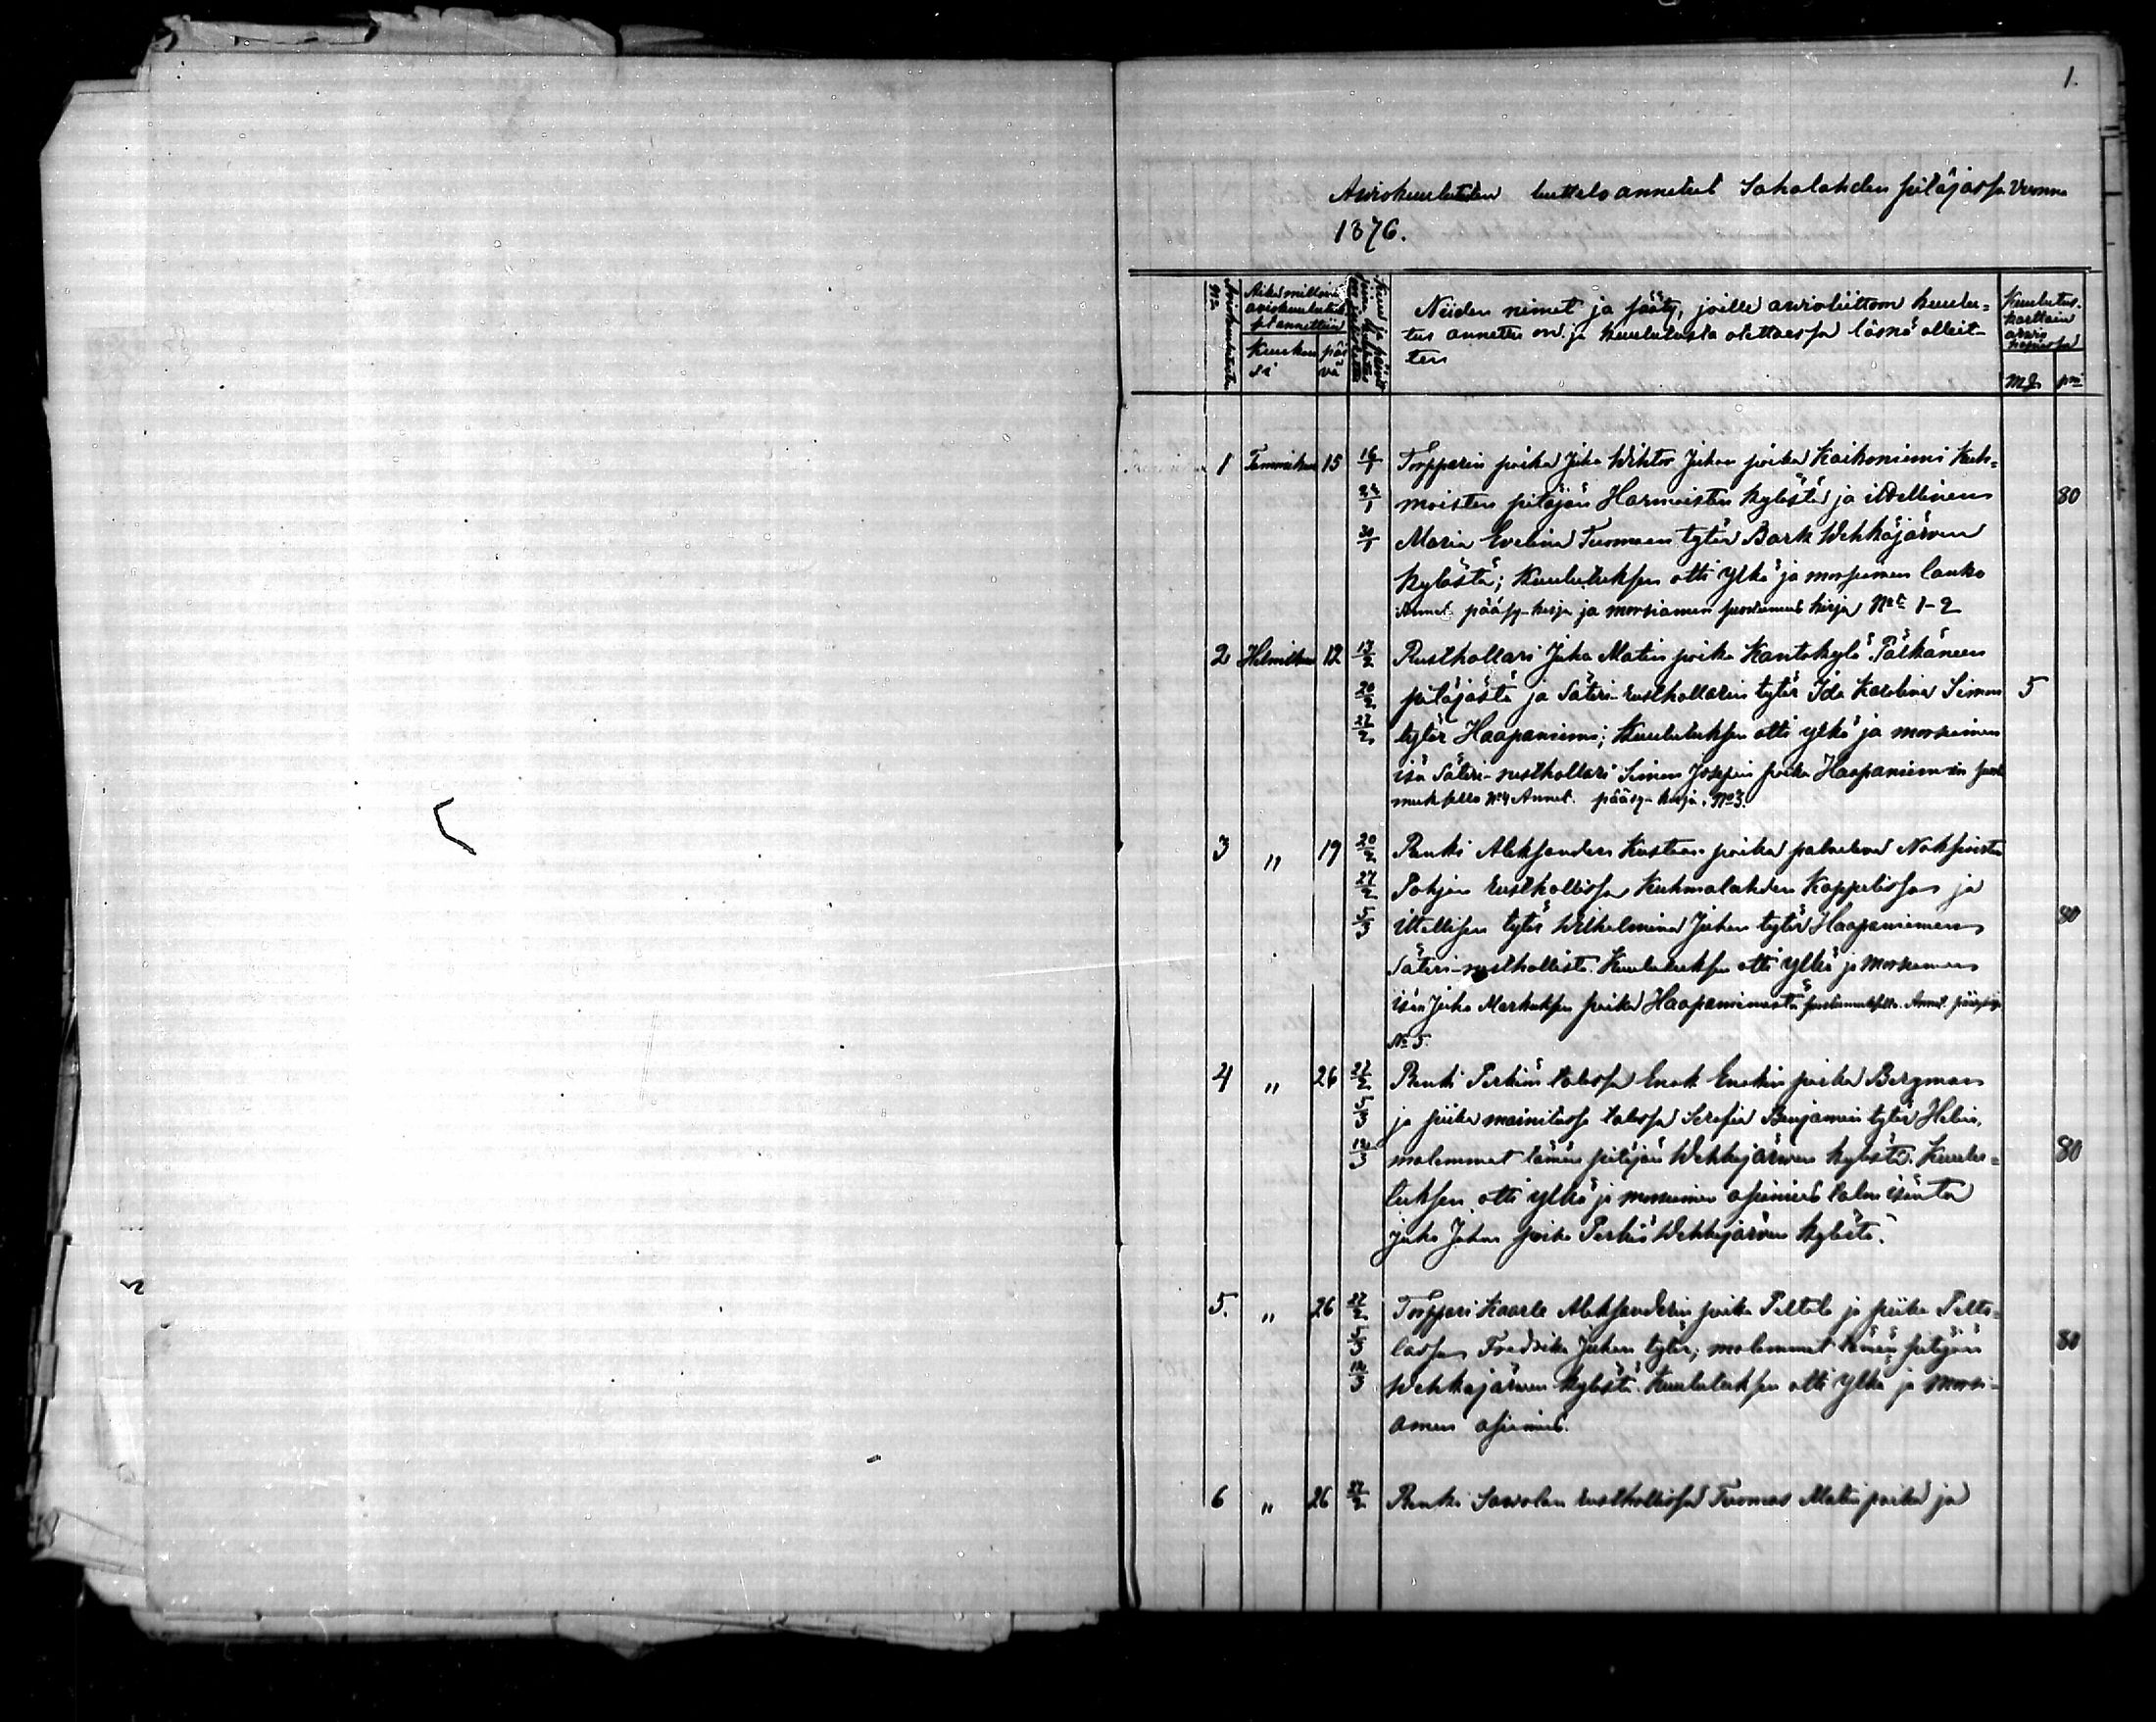 1.
Awiokuulutusten luettelo annetut Sahalahden pitäjässä Vuonna
1876.
Awiokuulutusten No
Aika milloin awiokuulutukset annettiin
Kuukausi
päivä
Niiden nimet ja sääty, joille awioliittoon kuulu-
tus annettu on ja kuulutusta otettaessa läsnä olleit-
ten
Kuulutus-
karttain
arvio
mk
pni
1 Tammikuu 15 16/1 Torpparin poika Juha Wihtor Juhan poika Kaikoniemi Kuh-
24/1 moisten pitäjän Harmoisten kylästä ja itsellinen 80
30/1 Maria Evelina Tuomaan tytär Bark Wehkajärven
kylästä; Kuulutuksen otti ylkä ja morsiamen lanko
Annet. pääsy-kirja ja morsiamen suostumus kirja No 1-2
2 Helmikuu 12 13/2 Rusthollari Juha Matin poika Kantokylä Pälkäneen
20/2 pitäjästä ja Säteri-rusthollarin tytär Ida Karolina Simon 5
27/2 tytär Haapaniemi; Kuulutuksen otti ylkä ja morsiamen
isä Säteri-rusthollari Simon Josepin poika Haapaniemi-in suos
muksella No 4 Annet. pääsy-kirja. No 3.
3 " 19 20/2 Renki Aleksanderi Kustaan poika palveleva
27/2 Pohjan rusthollissa Kuhmalahden Kappelissa ja
5/3 itsellisen tytär Wilhelmina Juhan tytär Haapaniemen 80
Säteri-rusthollista. Kuulutuksen otti ylkä ja morsiamen
isä Juha Markuksen poika Haapaniemestä suostumuksella. Annet. pääsykirja
No 5.
4 " 26 27/2 Renki Perkiön talossa Enok Enokin poika Bergman
5/3 ja piika mainitussa talossa Serafia Benjamin tytär Helin,
12/3 molemmat tämän pitäjän Wehkajärven kylästä. Kuulu- 80
tuksen otti ylkä ja morsiamen asiamies talon isäntä
Juha Juhan poika Perkiö Wehkajärven kylästä.
5. " 26 27/2 Torppari Kaarle Aleksanderin poika Peltola ja piika Pelto-
5/3 lassa Fredrika Juhan tytär; molemmat tämän pitäjän 80
12/3 Wehkajärven kylästä. Kuulutuksen otti ylkä ja morsi-
amen asiamies.
6 " 26 27/2 Renki Sawolan rusthollissa Tuomas Matin poika ja